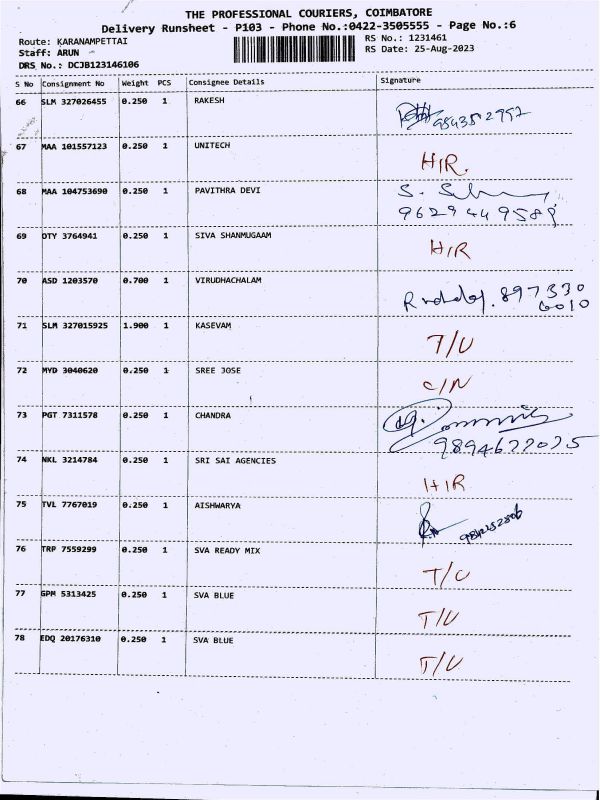 THE PROFESSIONAL COURIERS, COIMBATORE
Delivery Runsheet - P103 - Phone No.:0422-3505555 - Page No.:6
Route: KARANAMPETTAI RS No.: 1231461
Staff: ARUN RS Date: 25-Aug-2023
DRS No.: DCJB123146106
S No Consignment No Weight PCS Consignee Details Signature
66 SLM 327026455 0.250 1 RAKESH
67 MAA 101557123 0.250 1 UNITECH
H/R.
68 MAA 104753690 0.250 1 PAVITHRA DEVI
9629449589
69 OTY 3764941 0.250 1 SIVA SHANMUGAAM
H/R
70 ASD 1203570 0.700 1 VIRUDHACHALAM
897330
6010
71 SLM 327015925 1.900 1 KASEVAM
T/U
72 MYD 3040620 0.250 1 SREE JOSE
C/N
73 PGT 7311578 0.250 1 CHANDRA
9894622025
74 NKL 3214784 0.250 1 SRI SAI AGENCIES
H/R
75 TVL 7767019 0.250 1 AISHWARYA
76 TRP 7559299 0.250 1 SVA READY MIX
T/U
77 GPM 5313425 0.250 1 SVA BLUE
T/U
78 EDQ 20176310 0.250 1 SVA BLUE
T/U